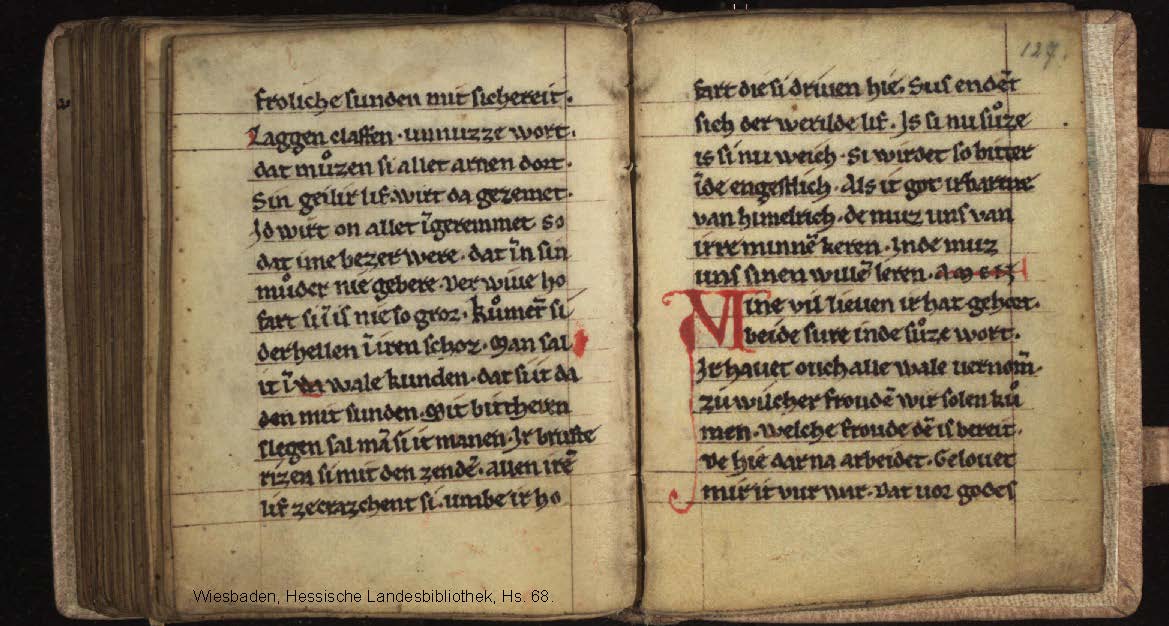 froliche sunden mit sichereit.
Laggen claffen. unnuzze wort.
dat můzen si allet arnen dort.
Sin geilir lif. wirt da gezemet.
Id wirt on allet ĩgeremmet. So
dat ime bezer were. dat ĩn sin
můder nie gebere. Der wiue ho
fart si ĩ is nie so groz. kůmet̃ si
der hellen ĩ iren schoz. Man sal
it ĩ da wale kunden. dat si it da
den mit sunden. Mit bitcheren
slegen sal mã si it manen. Ir bruste
rizen si mit den zendẽ. allen irẽ
lif zecrazchent si. umbe ir ho
127.
fart die si driuen hie. Sus endẽt
sich der werilde lif. Is si nu sůze
is si nu weich. Si wirdet so bitter
ĩde engestlich. Als it got irbarme
van himelrich. de muz uns van
irre minnẽ keren. Inde muz
uns sinen willẽ leren. amen
Mine vil lieuen ir hat gehort.
beide sure inde sůze wort.
Ir hauet ouch alle wale uernom̃.
zů wilcher froudẽ wir solen ků
men. welche froude dẽ is bereit.
De hie dar na arbeidet. Gelouet
mir it vur war. Dat uor godes
Wiesbaden, Hessische Landesbibliothek, Hs. 68.